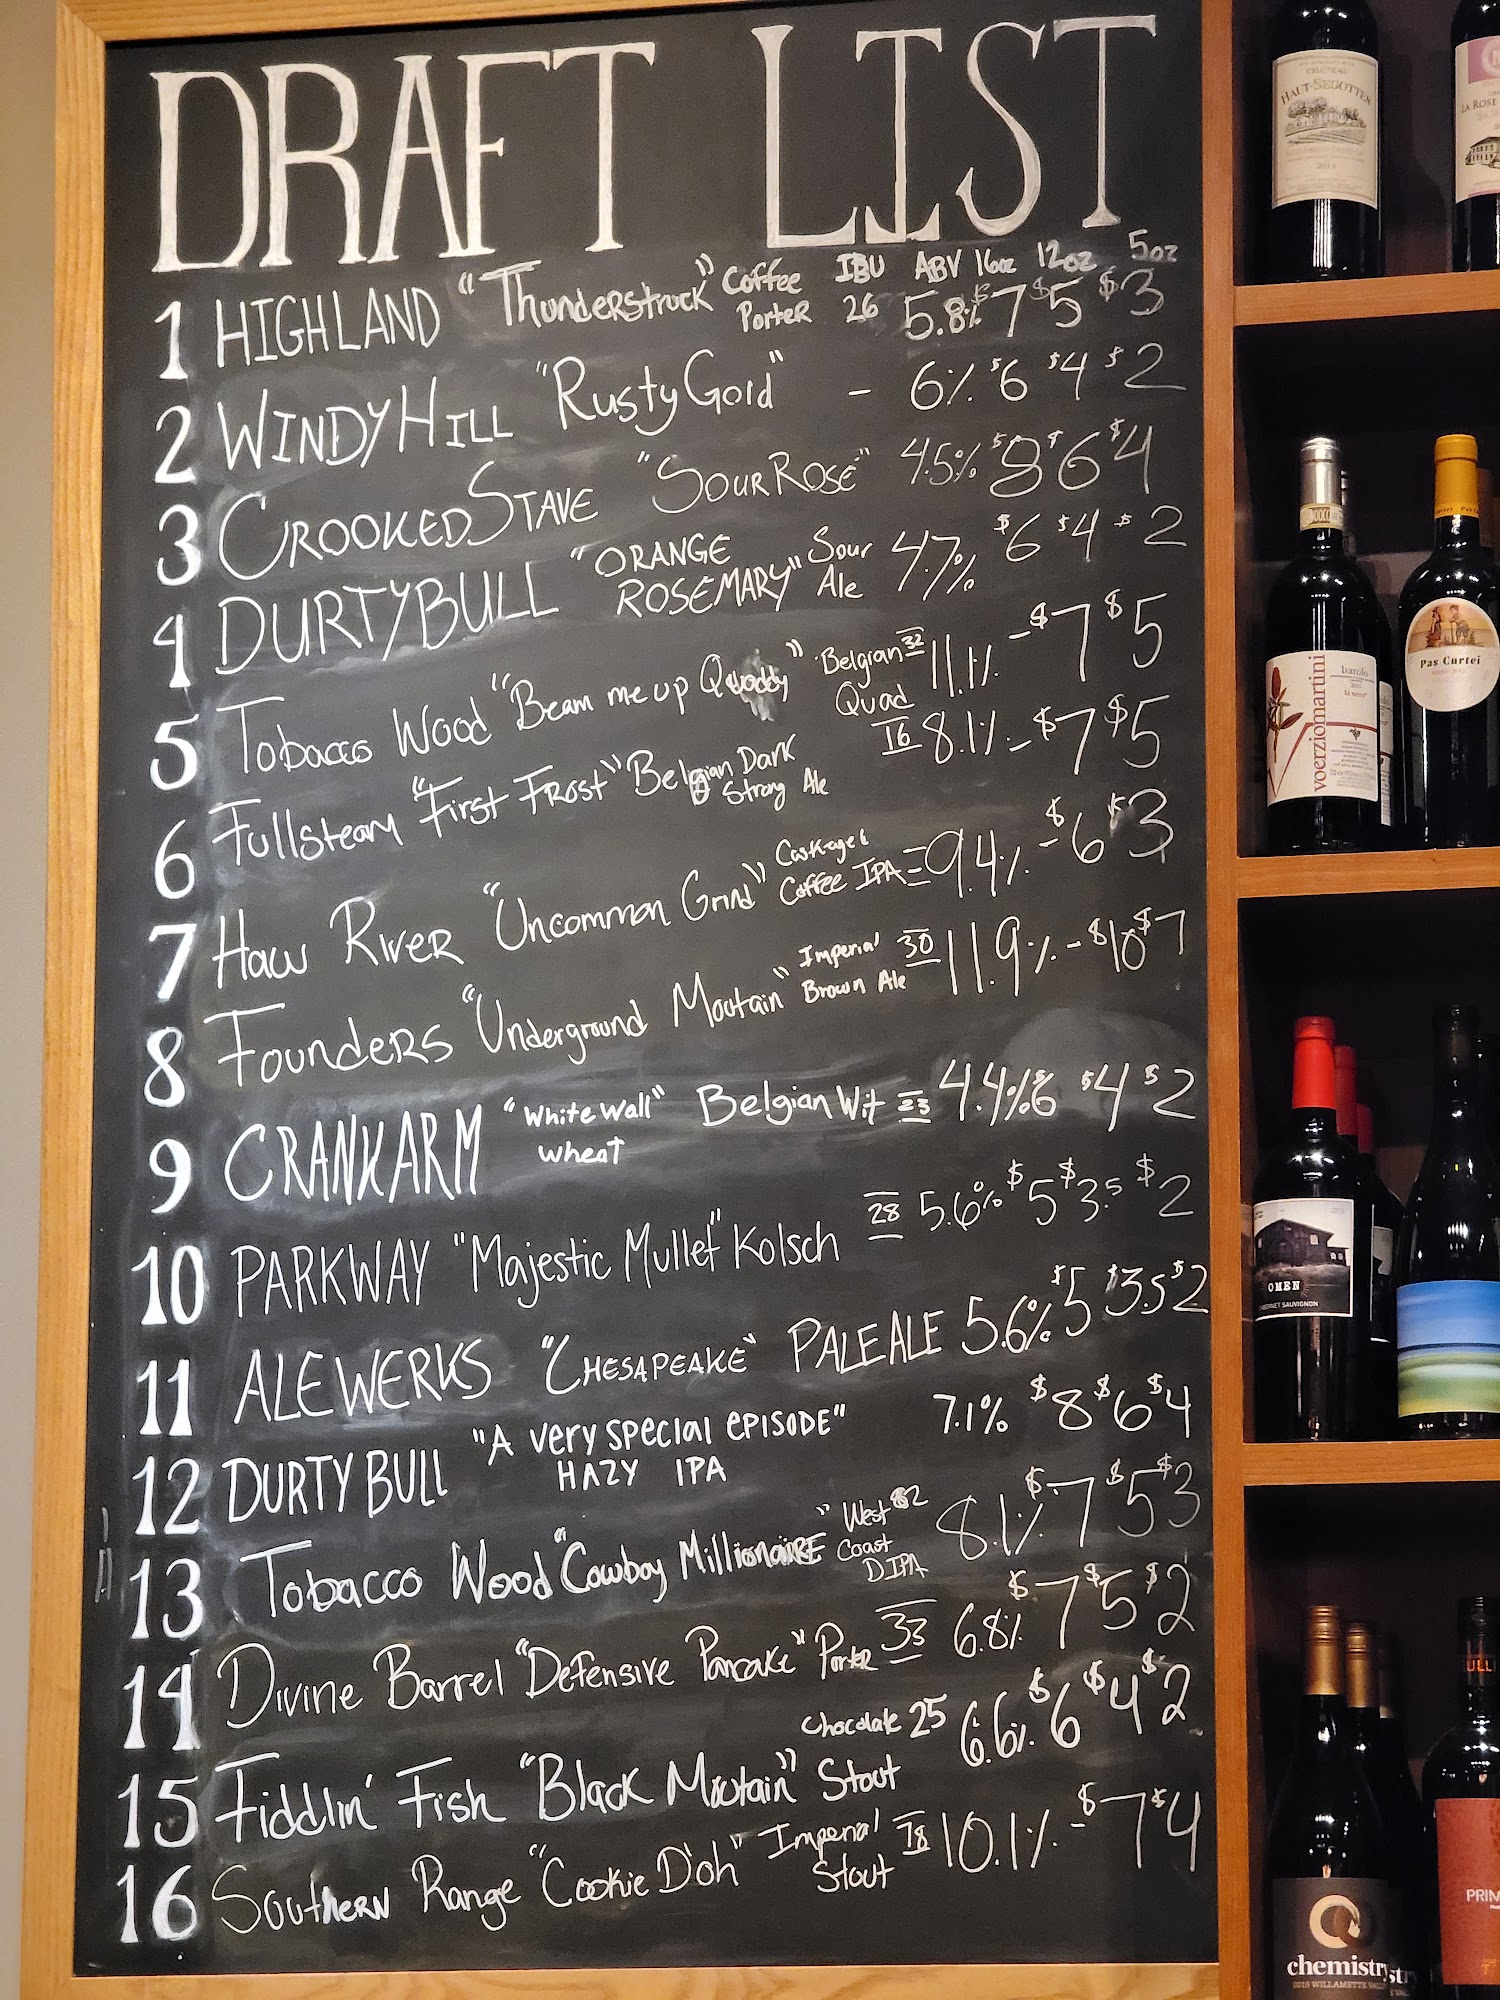 DRAFT LIST
IBU ABV 16oz 12oz 5oz
1 HIGHLAND "Thunderstruck" Coffee Porter 26 5.8% $7 $5 $3
2 WINDY HILL "Rusty Gold" - 6% $6 $4 $2
3 CROOKED STAVE "SOUR ROSE" 4.5% $8 $6 $4
4 DURTY BULL "ORANGE ROSEMARY" Sour Ale 4.7% $6 $4 $2
5 Tobacco Wood "Beam me up Quaddy" Belgian Quad 32 11.1% - $7 $5
6 Fullsteam "First Frost" Belgian Dark Strong Ale 16 8.1% - $7 $5
7 Haw River "Uncommon Grind" Coffee IPA 9.4% - $6 $3
8 Founders "Underground Moutain" Imperial Brown Ale 30 11.9% - $10 $7
9 CRANKARM "White Wall" wheat Belgian Wit 23 4.4% $6 $4 $2
10 PARKWAY "Majestic Mullet" Kolsch 28 5.6% $5 $3.5 $2
11 ALEWERKS "CHESAPEAKE" PALE ALE 5.6% $5 $3.5 $2
12 DURTY BULL "A very special episode" HAZY IPA 7.1% $8 $6 $4
13 Tobacco Wood "Cowboy Millionaire" West Coast DIPA 82 8.1% $7 $5 $3
14 Divine Barrel "Defensive Pancake" Porter 33 6.8% $7 $5 $2
15 Fiddlin' Fish "Black Moutain" Chocolate Stout 25 6.6% $6 $4 $2
16 Southern Range "Cookie D'oh" Imperial Stout 18 10.1% - $7 $4
CHATEAU
HAUT-SEGOTTES
2014
LA ROSE
voerziomartini
barolo
Pas Curtei
OMEN
CABERNET SAUVIGNON
chemistry
PRIN